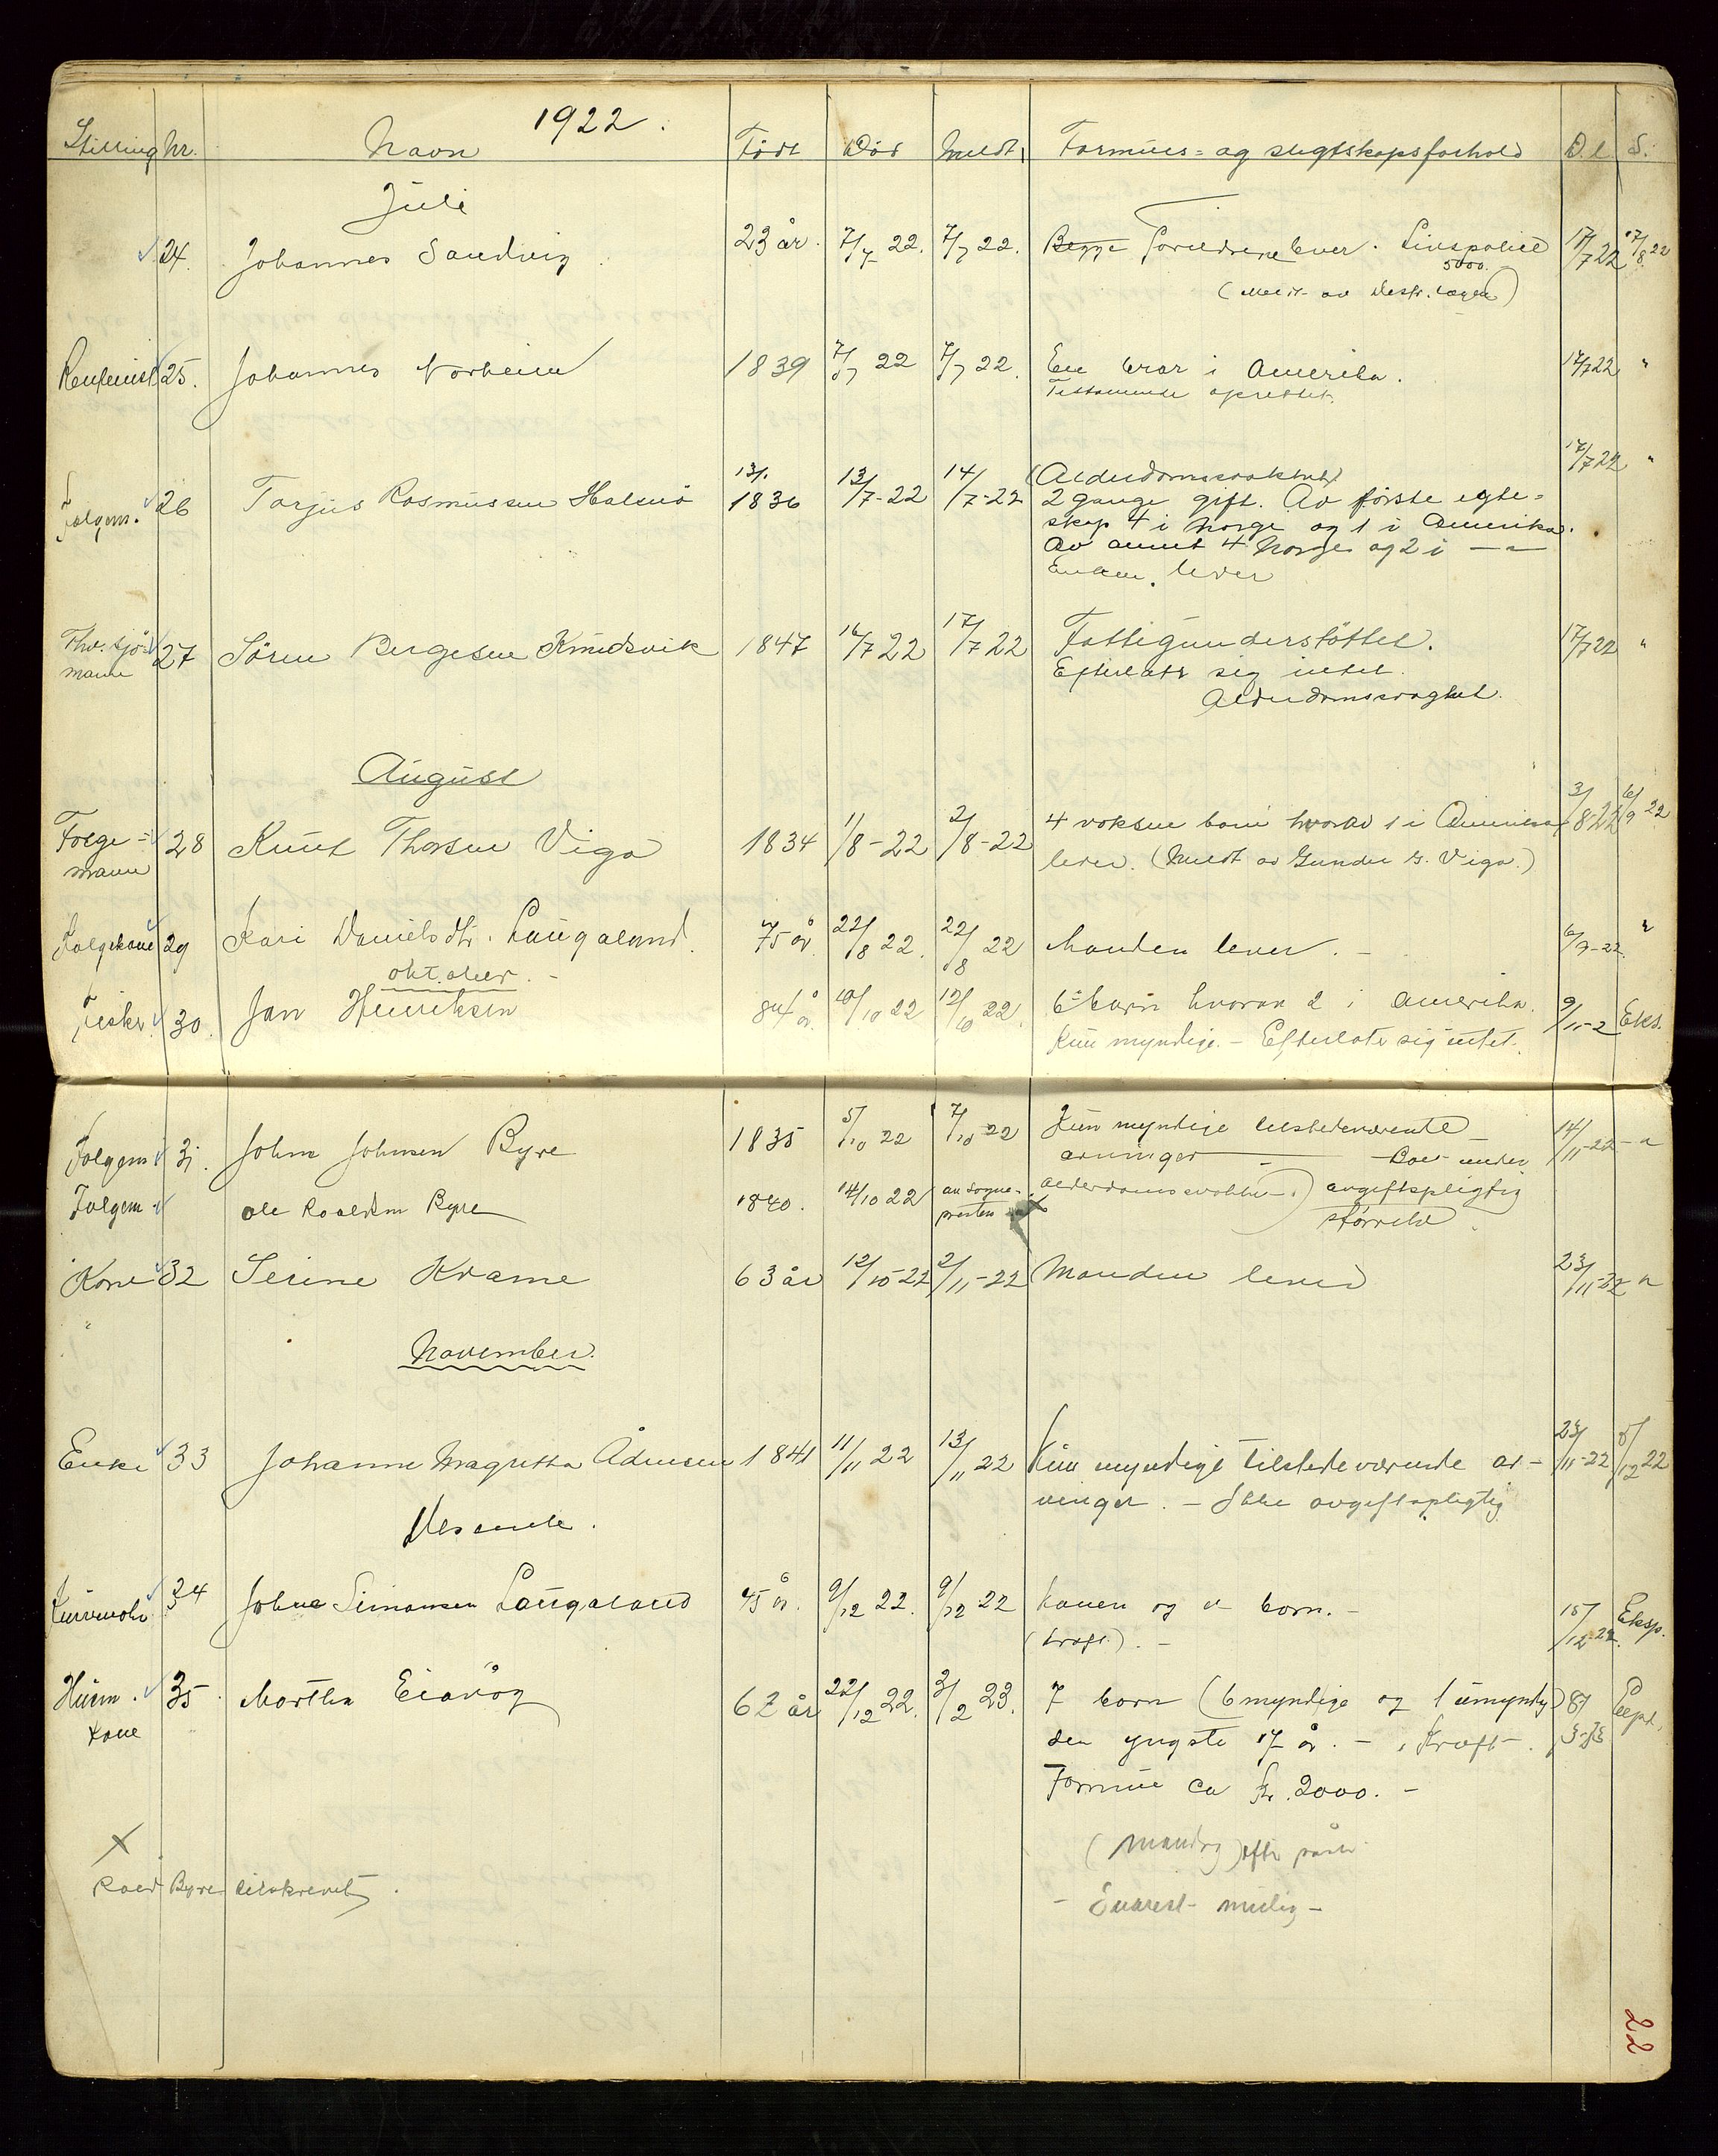 1922.
Stilling Nr. Navn Født Død Meldt Formues- og slegtskapsforhold D.l. S.
Juli
24. Johannes Sandvig 23 år. 7/7 22. 7/7 22. Begge Forældrene lever. Livspolice 17/7 22 17/8 22
5000.
(Meldt av Distr. lægen)
Rentenist 25. Johannes Norheim 1839 7/7 22 7/7 22. En bror i Amerika. 17/7 22 "
Testamente oprettet.
13/1 (Alderdomssvakhet) 17/7 22 "
Folgem. 26 Torjus Rasmussen Halsnø 1836 13/7-22 14/7-22 2 gange gift. Av første egte-
skap 4 i Norge og 1 i Amerika.
Av annet 4 Norge og 2 i — " —
Enken lever
Fhv. sjø- 27 Søren Bergesen Knudsvik 1847 16/7 22 17/7 22 Fattigunderstøttet. 17/7 22 "
mann Efterlater sig intet.
Alderdomssvaghet.
August
Folge- 28 Knut Thorsen Viga 1834 1/8-22 2/8-22 4 voksne barn hvorav 1 i Amerika 3/8-22 6/9 22
mann lever. (Meldt av Gunder K. Viga.)
Folgekone 29 Kari Danielsdtr. Laugaland. 75 år. 22/8 22. 22/8 22 Manden lever. - 6/9-22. "
oktober. -
Fisker. 30. Jan Henriksen 84 år. 10/10 22 12/10 22. 6 barn hvorav 2 i Amerika. 9/11-2 Eks.
Kun myndige. - Efterlater sig intet.
Folgem. 31. John Johnsen Byre 1835 5/10 22 7/10-22 Kun myndige tilstedeværende 14/11-22 - "
arvinger — Boet under
Folgem. Ole Roaldsen Byre 1840. 14/10 22 av sogne- alderdomssvakhet-.) avgiftspligtig
presten størrelse.
Kone 32 Serine Krame 63 år 12/10-22 2/11-22 Manden lever 23/11-22 "
"
November.
Enke 33 Johanne Magretha Ådnesen 1841 11/11 22 13/11 22 Kun myndige tilstedeværende ar- 23/11-22 8/12 22
vinger. - Ikke avgiftspligtig
Desember.
34 Johne Simonsen Laugaland 45 år. 9/12 22. 9/12 22 Konen og barn. - 15/12-22. Eksp.
(kræft). -
Husm. 35. Martha Eiavåg 62 år 22/12 22. 3/2 23. 7 barn (6 myndige og 1 umyndig) 8/3-23 Expt.
kone den yngste 17 år. - Kræft-.
Formue ca kr. 2000. -
(Mandag) efter påske
X
Roald Byre tilskrevet.
- Snarest mulig -
22